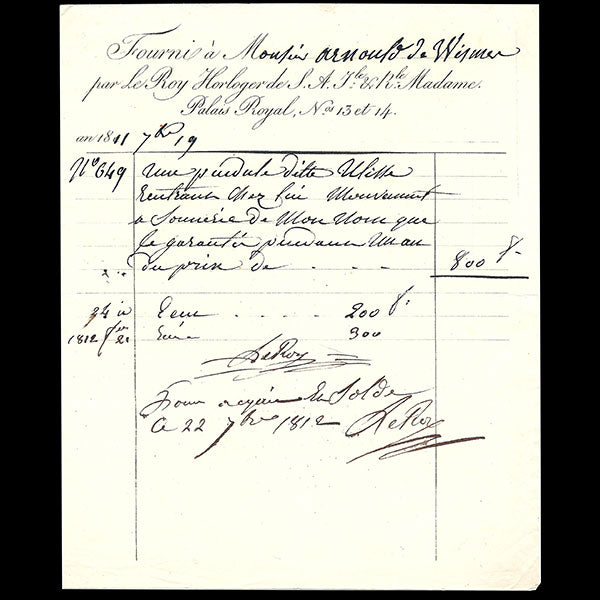 Fourni à Monsieur arnould de Wismes
par Le Roy Horloger de S. A. Jle. & Rle. Madame.
Palais Royal, Nos 13 et 14.
an 1811 7bre 19
N° 649 une pendule ditte Ulisse
rentrant chez lui Mouvement
a Sonnerie de Mon Nom que
Je garantie pendant un an
du prix de . . . . 800 f.
24 Reçu . . . . . 200 f.
1812 21 300
LeRoy
Pour acquit En Solde
Ce 22 7bre 1812 LeRoy